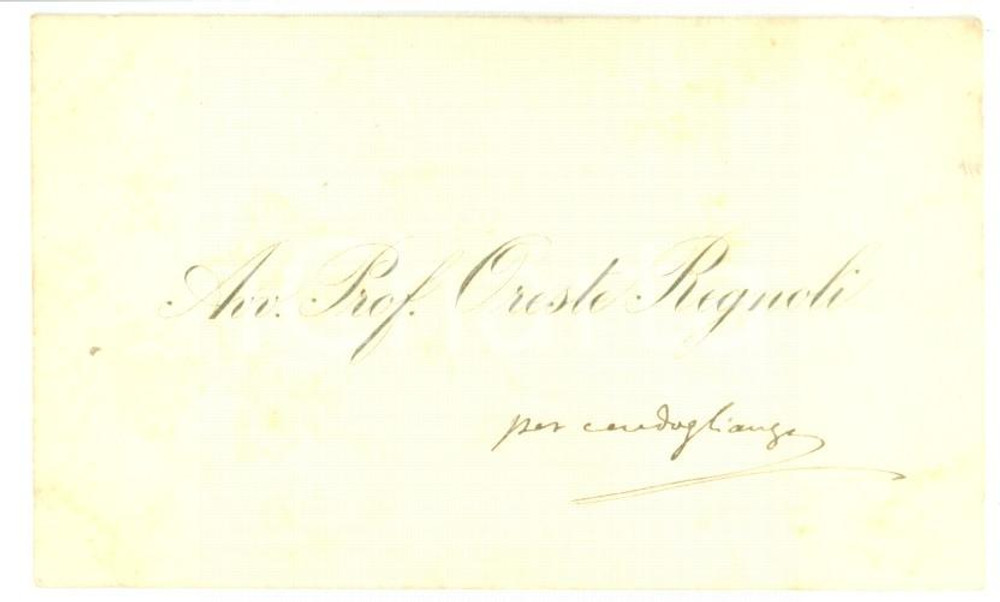 Avv. Prof. Oreste Regnoli
per condoglianze